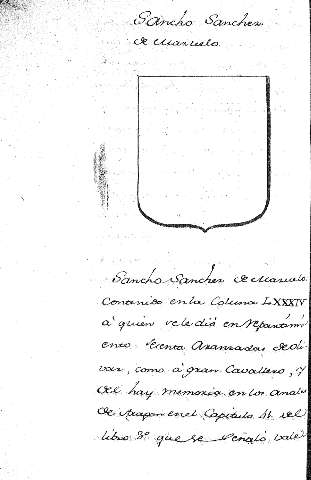 Sancho Sanchez
de Mazuelo.
Sancho Sanchez de Mazuelo
Contenido en la Coluna LXXXIV
à quien se le dió en Repartimi
ento treinta Aranzadas de Oli
var, como à gran Cavallero, y
del hay memoria en los Anales
de Aragon en el Capitulo 41 del
libro 3º que se señaló vale